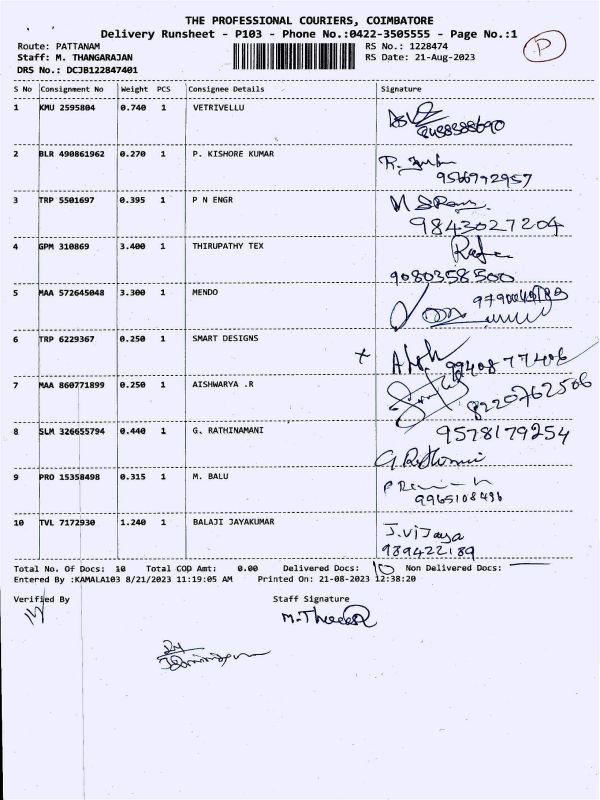 THE PROFESSIONAL COURIERS, COIMBATORE
Delivery Runsheet - P103 - Phone No.:0422-3505555 - Page No.:1
Route: PATTANAM RS No.: 1228474
Staff: M. THANGARAJAN RS Date: 21-Aug-2023
P
DRS No.: DCJB122847401
S No Consignment No Weight PCS Consignee Details Signature
1 KMU 2595804 0.740 1 VETRIVELLU
2 BLR 490861962 0.270 1 P. KISHORE KUMAR
9566772957
3 TRP 5501697 0.395 1 P N ENGR
9843027204
4 GPM 310869 3.400 1 THIRUPATHY TEX
9080358500
5 MAA 572645048 3.300 1 MENDO
6 TRP 6229367 0.250 1 SMART DESIGNS
9940877406
7 MAA 860771899 0.250 1 AISHWARYA .R
8220762506
8 SLM 326655794 0.440 1 G. RATHINAMANI
9578179254
9 PRO 15358498 0.315 1 M. BALU
9965108496
10 TVL 7172930 1.240 1 BALAJI JAYAKUMAR
J.Vijaya
989422189
Total No. Of Docs: 10 Total COD Amt: 0.00 Delivered Docs: 10 Non Delivered Docs:
Entered By :KAMALA103 8/21/2023 11:19:05 AM Printed On: 21-08-2023 12:38:20
Verified By Staff Signature